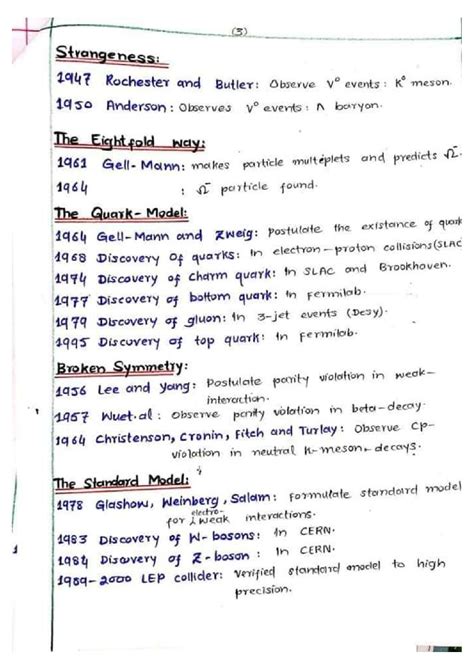 (3)
Strangeness:
1947 Rochester and Butler: Observe V° events: K° meson.
1950 Anderson: Observes V° events: Λ baryon.
The Eightfold way:
1961 Gell-Mann: makes particle multiplets and predicts Ω⁻.
1964 : Ω⁻ particle found.
The Quark-Model:
1964 Gell-Mann and Zweig: Postulate the existance of quark
1968 Discovery of quarks: In electron-proton collisions(SLAC
1974 Discovery of charm quark: In SLAC and Brookhaven.
1977 Discovery of bottom quark: In Fermilab.
1979 Discovery of gluon: In 3-jet events (Desy).
1995 Discovery of top quark: In Fermilab.
Broken Symmetry:
1956 Lee and Yang: Postulate parity violation in weak-
interaction.
1957 Wuet.al: Observe parity violation in beta-decay.
1964 Christenson, Cronin, Fitch and Turlay: Observe CP-
violation in neutral K-meson-decays.
The Standard Model:
1978 Glashow, Weinberg, Salam: Formulate standard model
for electro-weak interactions.
1983 Discovery of W-bosons: In CERN.
1984 Discovery of Z-boson: In CERN.
1989-2000 LEP collider: Verified standard model to high
precision.